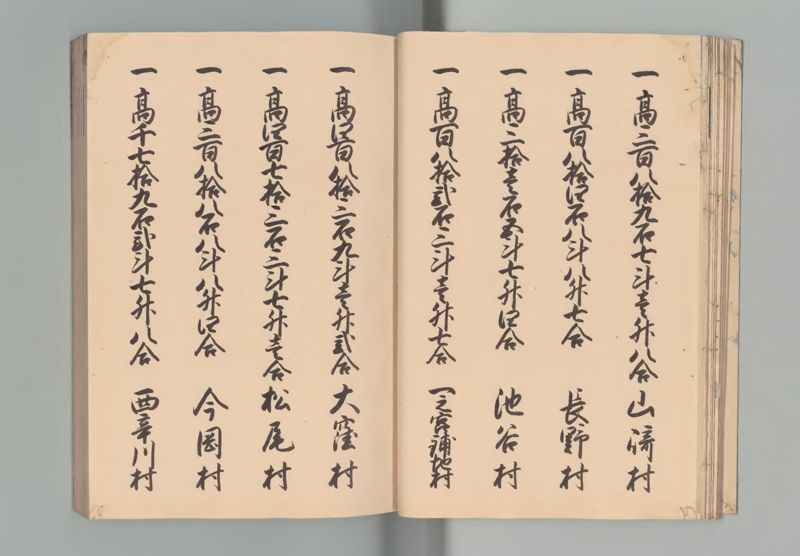 一 高三百八拾九石七斗壱升八合 山崎村
一 高百八拾四石八斗八升七合 長野村
一 高三拾壱石五斗七升四合 池谷村
一 高百八拾弐石三斗壱升七合 一之宮補地村
一 高四百八拾三石九斗壱升弐合 大窪村
一 高四百七拾三石三斗七升壱合 松尾村
一 高三百八拾八石八斗八升四合 今岡村
一 高千七拾九石弐斗七升八合 西章川村